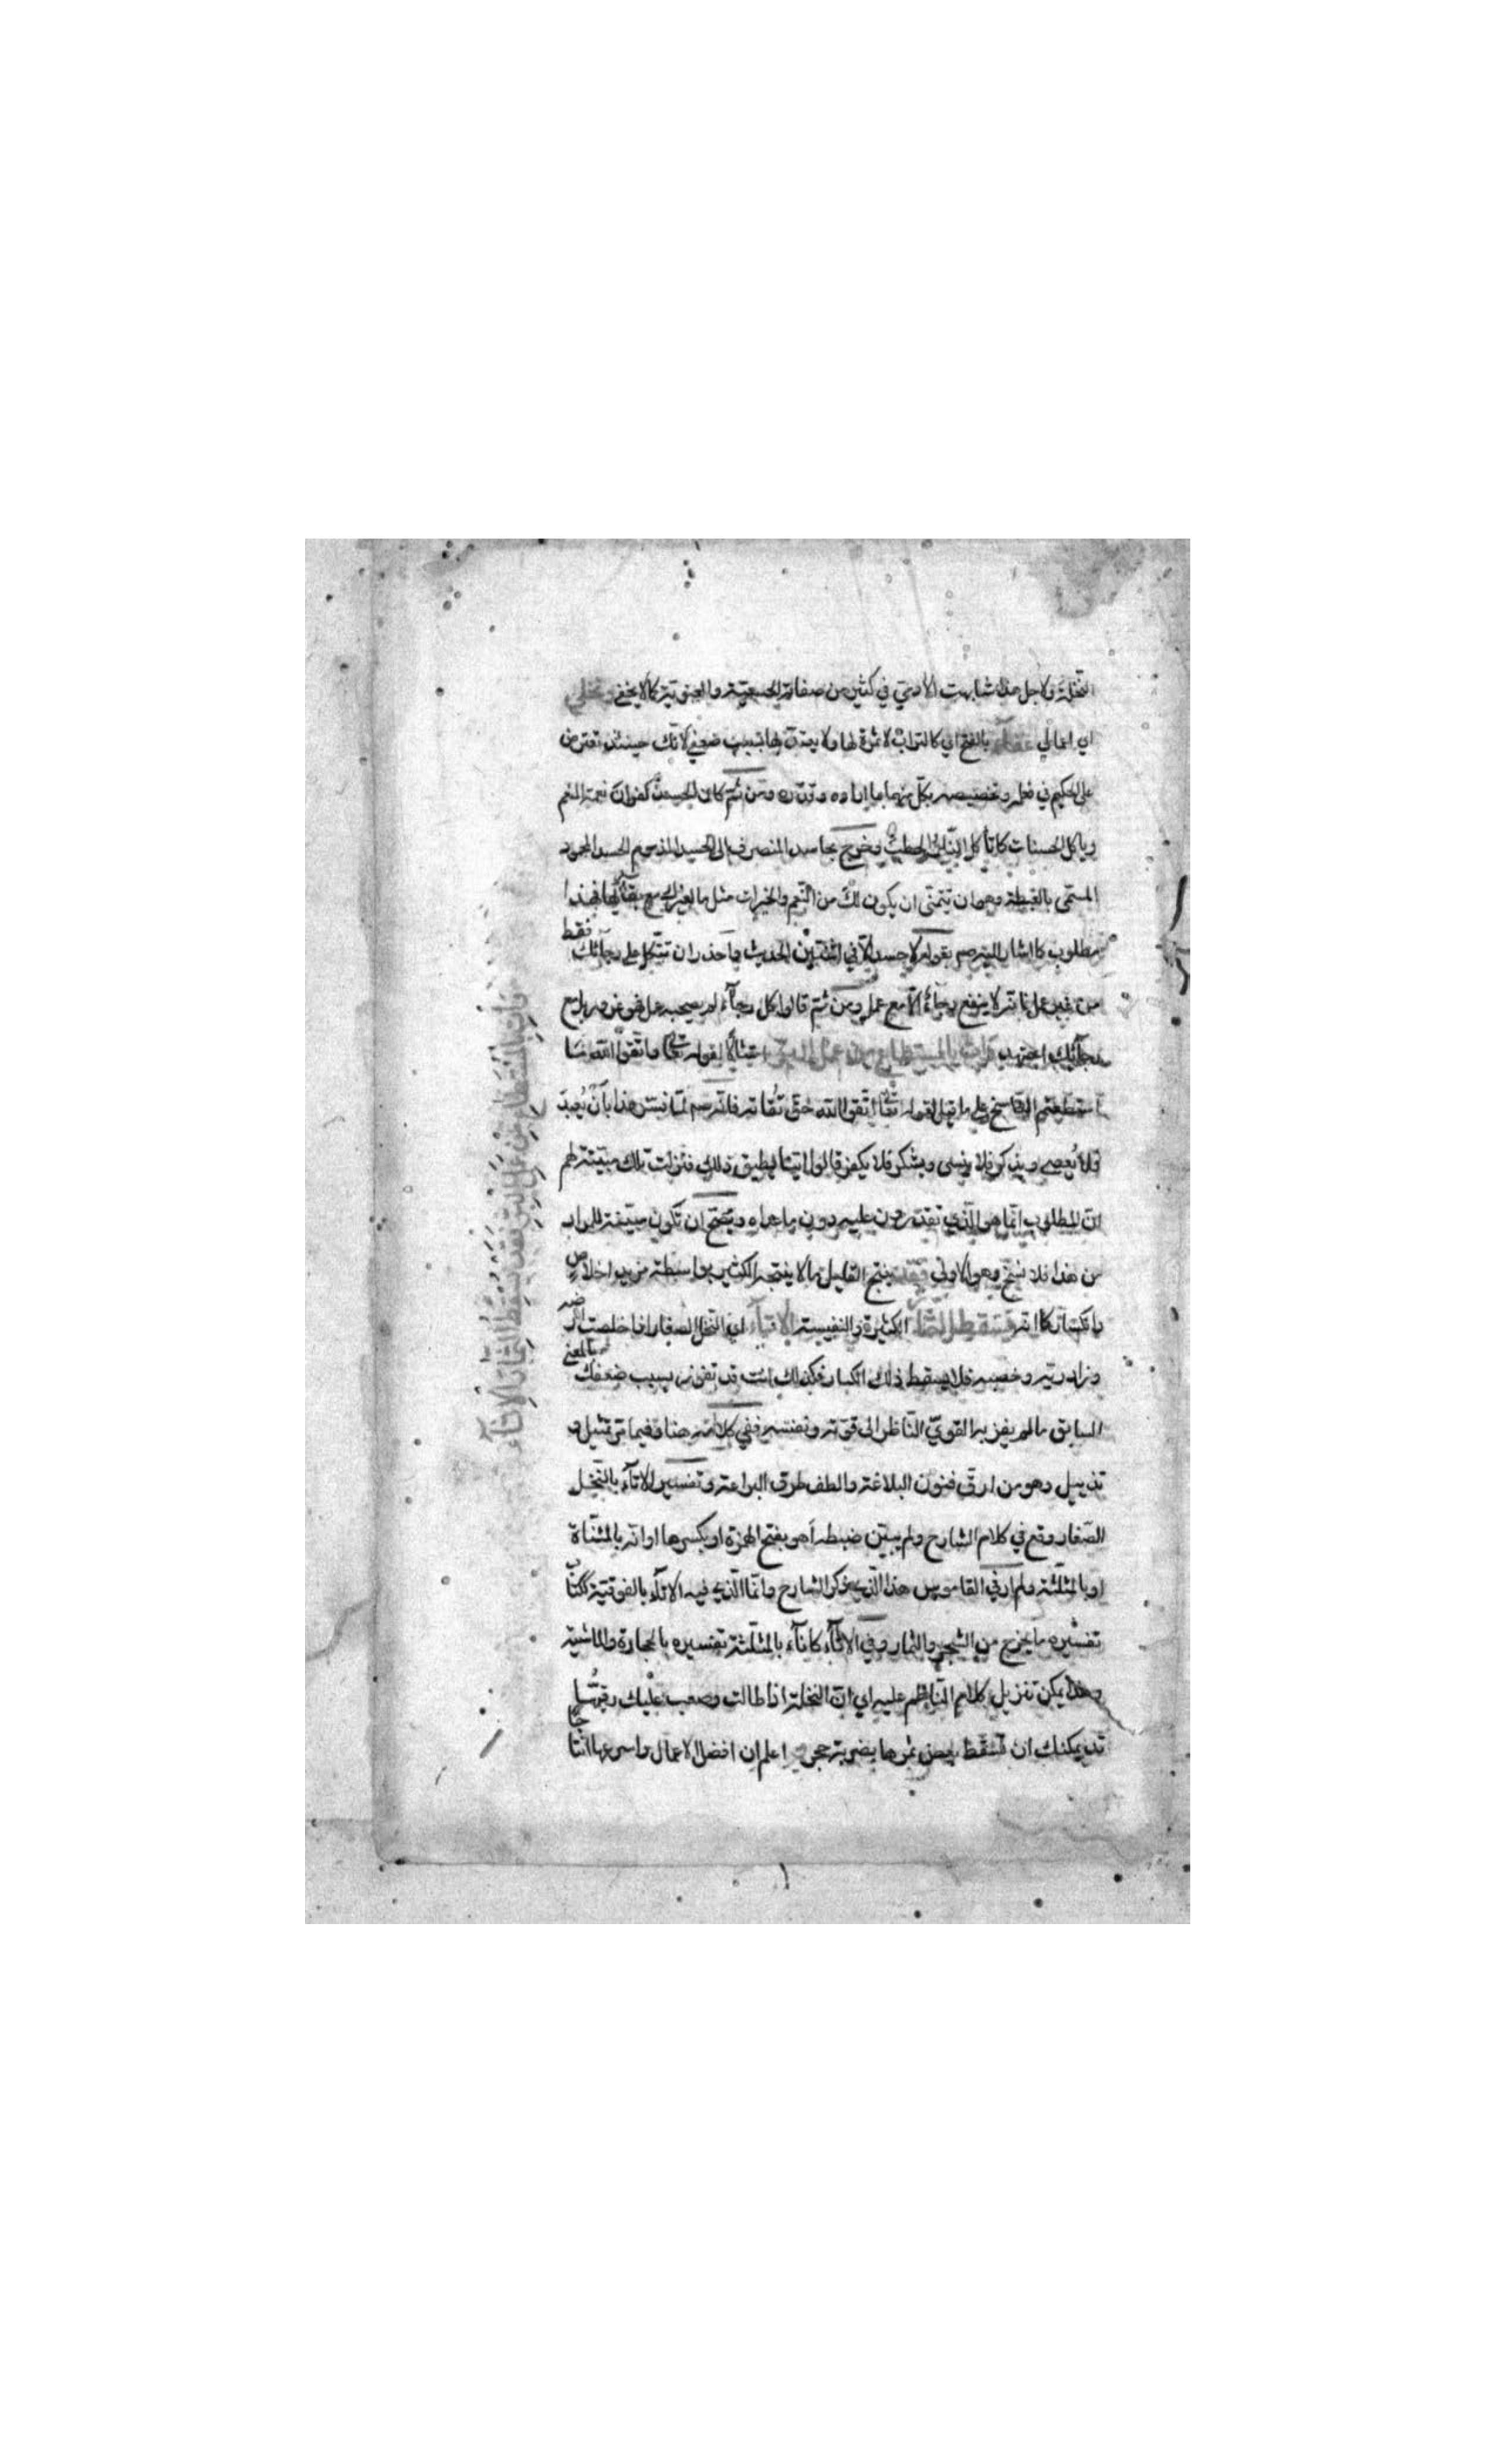 النخلة ولاجل هذا شابهت الآدمي في كثير من صفاته الحسية والمعنوية كما لا يخفى ونخلي
اي اعمالي عفاء بالفتح اي كالتراب لا ثمرة لها ولا يعتد بها بسبب ضعفي لانك حينئذ تعترض
على الحكيم في فعله وتخصيصه بكل منهما ما اراده وقدره ومن ثم كان الحسد كفران نعمة المنعم
وياكل الحسنات كما تأكل النار الحطب وخرج بحاسد المنصرف الى الحسد المذموم الحسد المحمود
المسمى بالغبطة وهو ان تتمنى ان يكون لك من النعم والخيرات مثل ما لغيرك مع بقائها فهذا
مطلوب كما اشار اليه صم بقوله لا حسد الا في اثنتين الحديث واحذر ان تتكل على رجائك فقط
من غير عمل فانه لا ينفع رجاء الا مع عمل ومن ثم قالوا كل رجاء لم يصحبه عمل فهو غرور بل مع
رجائك اجتهد وات بالمستطاع من عمل البر امتثالا لقوله تعالى فاتقوا الله ما
استطعتم الناسخ على ما قيل لقوله تعالى اتقوا الله حق تقاته فانه صم لما فسر هذا بأن يعبد
فلا يعصى ويذكر فلا ينسى ويشكر فلا يكفر قالوا اينا يطيق ذلك فنزلت تلك مبينة لهم
ان المطلوب انما هو الذي تقدرون عليه دون ما عداه ويصح ان تكون مبينة للمراد
من هذا فلا نسخ وهو الاولى فقد ينتج القليل ما لا ينتجه الكثير بواسطة مزيد اخلاص
وانكسار كما انه قد تسقط الثمار الكثيرة والنفيسة الاتاء اي النخل الصغار اذا خلصت ارضه
وزاد ريه وخصبه فلا يسقط ذلك الكبار فكذلك انت قد تفوز بسبب ضعفك بالمعنى
السابق ما لم يفز به القوي الناظر الى قوته ونفسه ففي كلامه هنا وفيما مر تمثيل و
تذييل وهو من ارق فنون البلاغة والطف طرق البراعة وتفسير الاتاء بالنخل
الصغار وقع في كلام الشارح ولم يبين ضبطه أهو بفتح الهمزة او بكسرها او انه بالمثناة
او بالمثلثة ولم ار في القاموس هذا الذي ذكره الشارح وانما الذي فيه الاتاء بالفوقية ككتاب
تفسيره ما يخرج من الشجر والثمار وفي الاثاء كاناء بالمثلثة تفسيره بالحجارة والماشية
وهذا يمكن تنزيل كلام الناظم عليه اي ان النخلة اذا طالت وصعب عليك رقيها
قد يمكنك ان تسقط بعض ثمرها بضربة حجر اعلم ان افضل الاعمال واسرعها انتاجا
وأت بالمستطاع من عمل البر فقد تسقط الثمار الاتاء